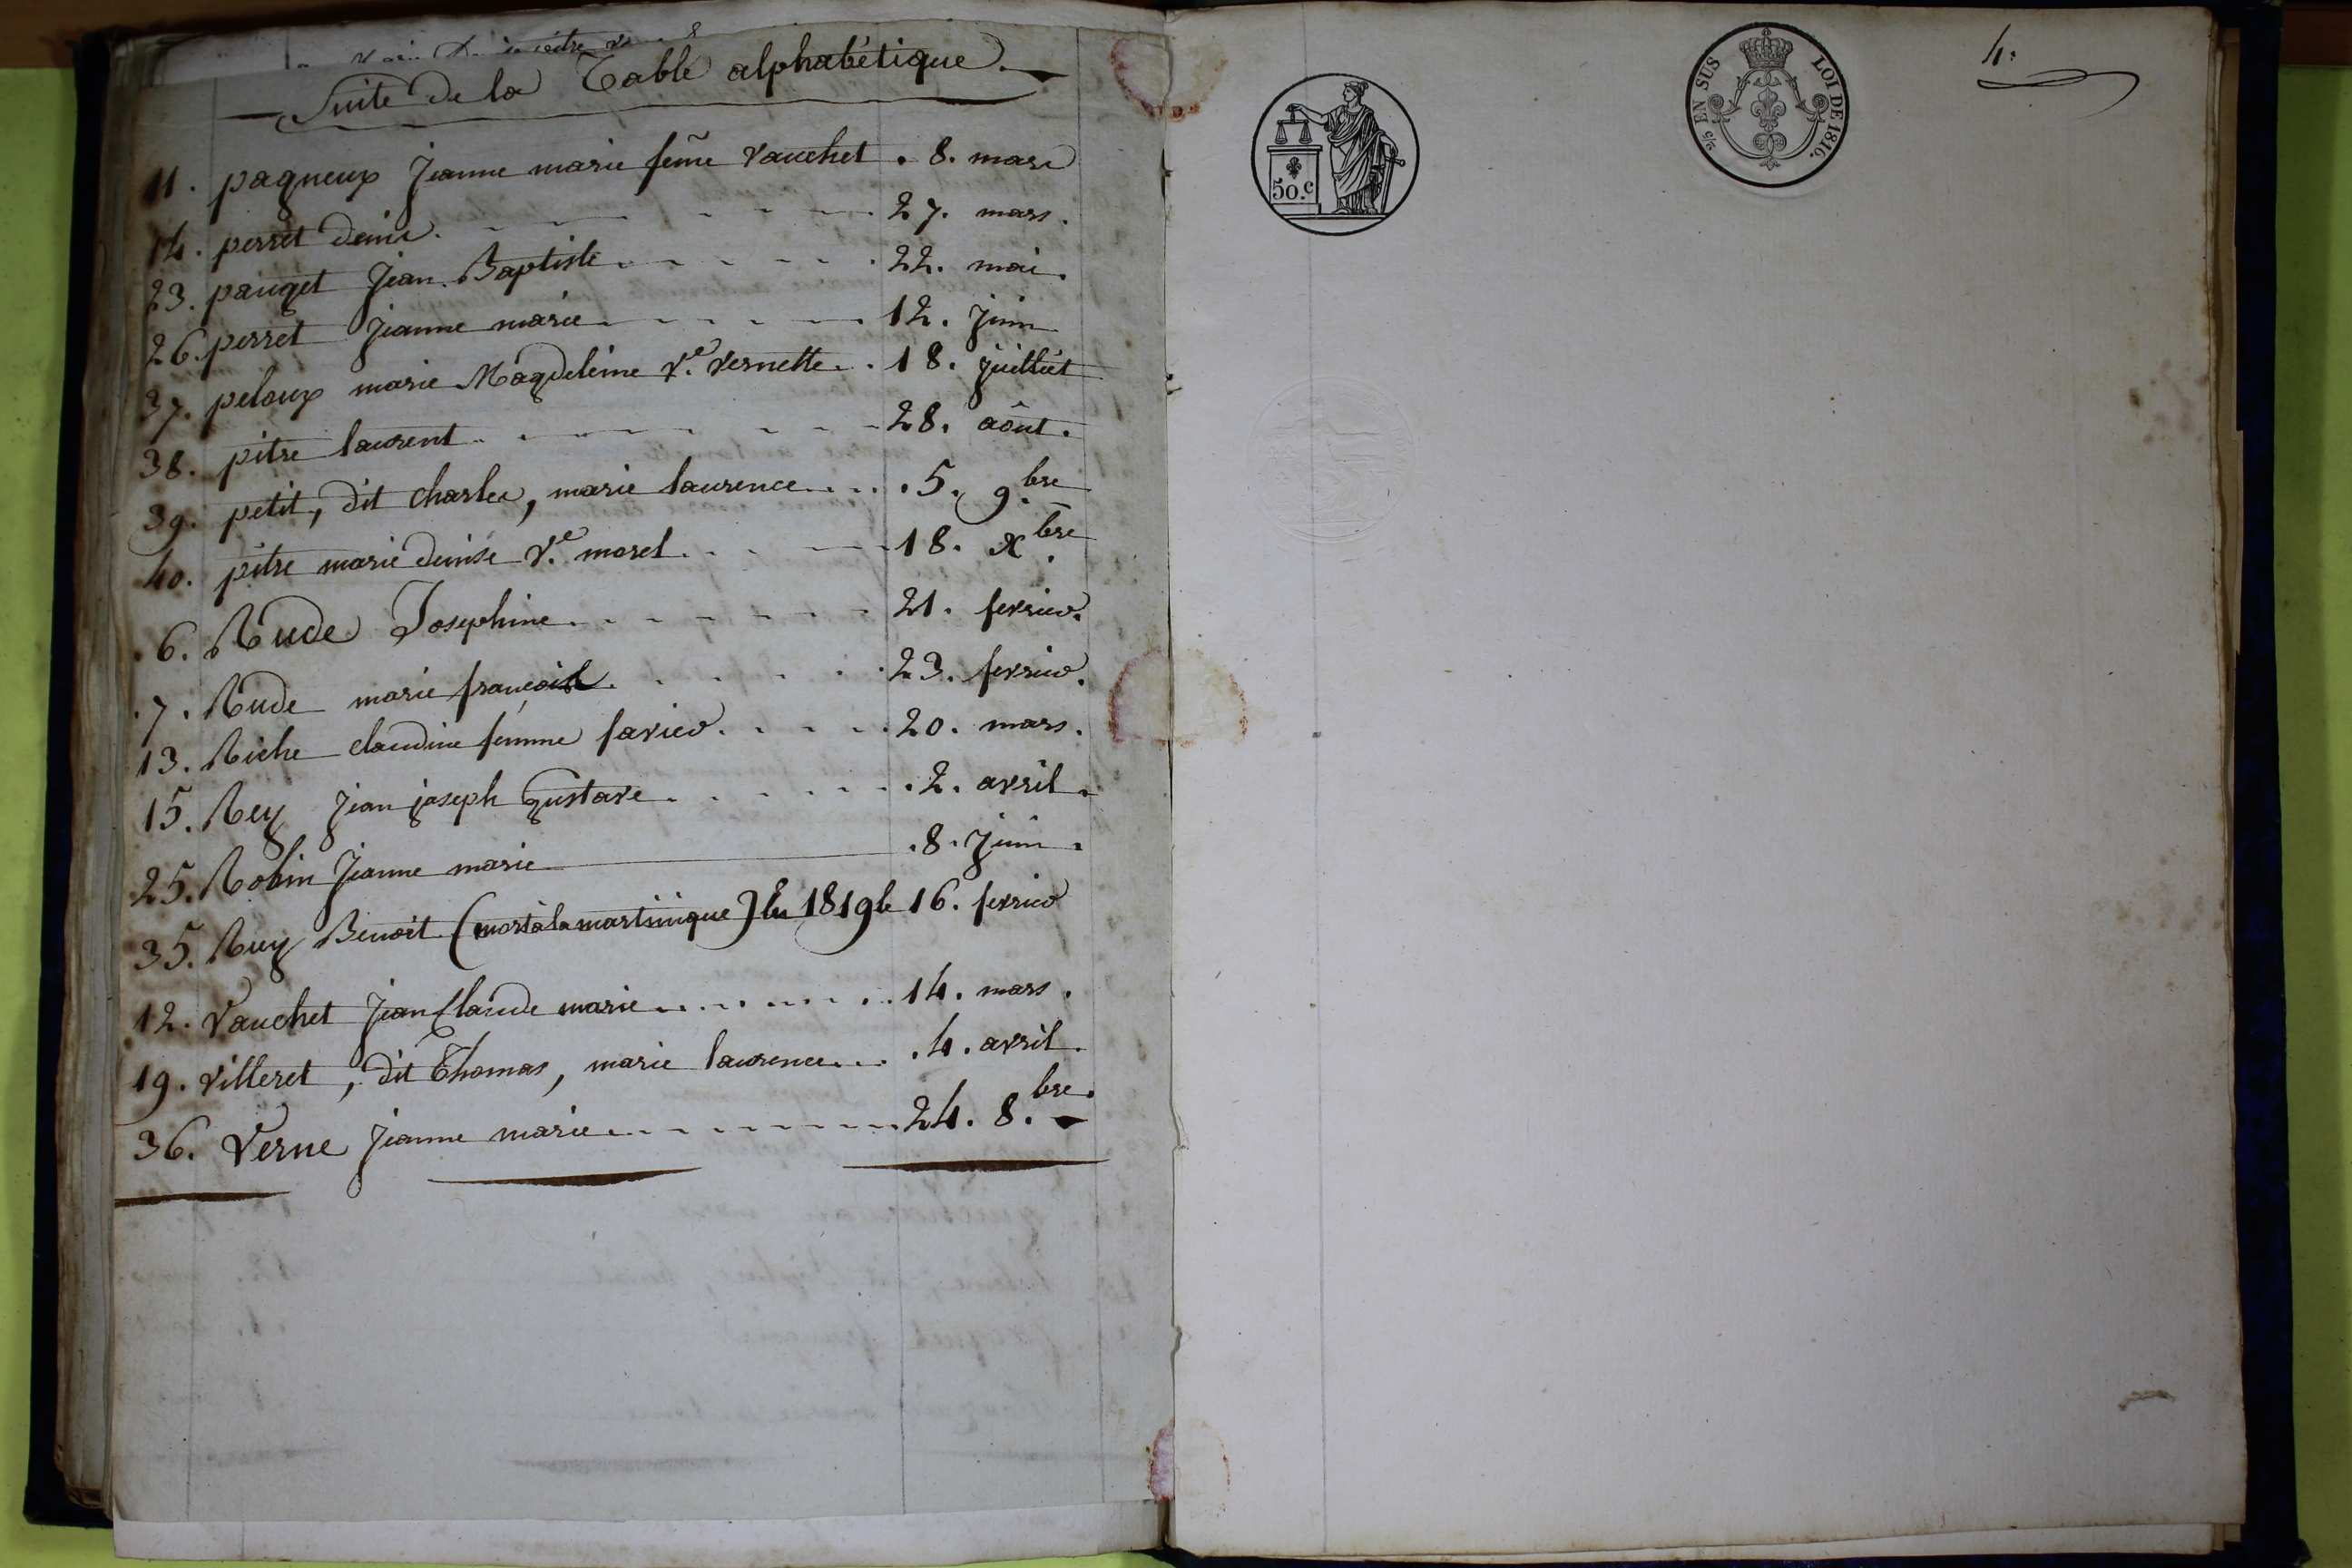 Suite de la Table alphabétique.
11. pagneux Jeanne marie femme vauchet . 8. mars
14. perret denis. 27. mars.
23. pauget Jean Baptiste 22. mai.
26. perret Jeanne marie 12. juin
37. peloux marie Magdeleine Ve. vernette. 18. juillet
38. pitre laurent 28. août.
39. petit, dit charles, marie laurence .5. 9.bre
40. pitre marie denise Ve. morel 18. Xbre.
.6. Rude Josephine 21. fevrier.
.7. Rude marie françoise 23. fevrier.
13. Riche claudine femme favier. 20. mars.
15. Rey Jean joseph Gustave .2. avril.
25. Robin Jeanne marie .8. Juin.
35. Ruy Benoit (mort à la martinique) En 1819 le 16. fevrier
12. Vauchet Jean Claude marie 14. mars.
19. Villeret, dit Thomas, marie laurence .4. avril.
36. Verne Jeanne marie 24. 8.bre.
50.c
2/5 EN SUS LOI DE 1816.
4.